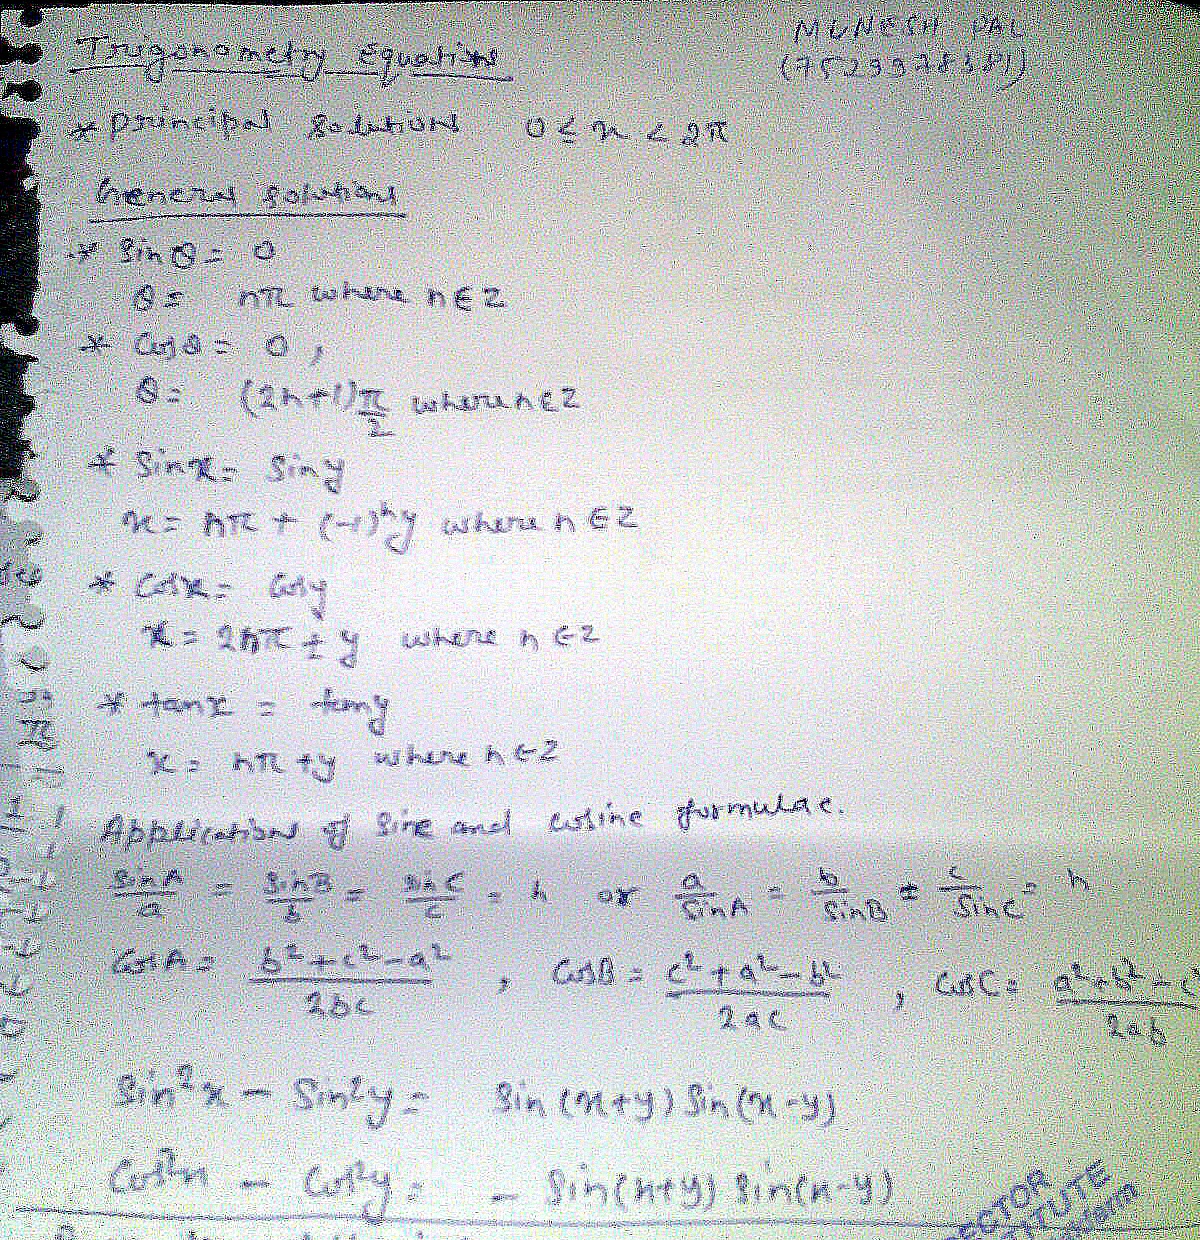 MUNESH PAL
Trigonometry Equations
* principal solutions 0 ≤ x < 2π
General solutions
* Sin θ = 0
θ = nπ where n ∈ Z
* Cos θ = 0,
θ = (2n+1)π/2 where n ∈ Z
* Sin x = Sin y
x = nπ + (-1)ⁿy where n ∈ Z
* Cos x = Cos y
x = 2nπ ± y where n ∈ Z
* tan x = tan y
x = nπ + y where n ∈ Z
Applications of Sine and cosine formulae.
Sin A/a = Sin B/b = Sin C/c = h or a/Sin A = b/Sin B = c/Sin C = h
Cos A = b²+c²-a²/2bc , Cos B = c²+a²-b²/2ac , Cos C = a²+b²-c/2ab
Sin²x - Sin²y = Sin(x+y) Sin(x-y)
Cos²x - Cos²y = - Sin(x+y) Sin(x-y)
CTOR
TITUTE